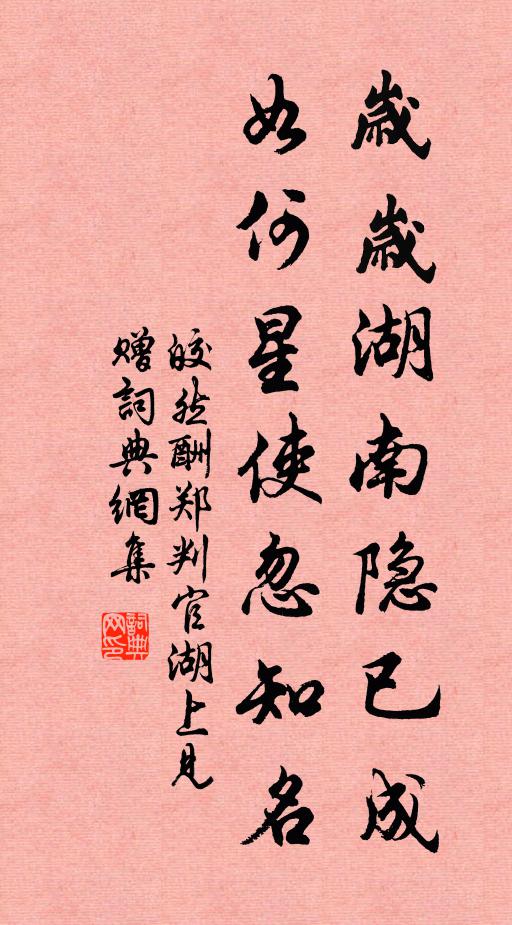 歲歲湖南隐已成
如何星使忽知名
皎然酬郑判官湖上見
赠詞典網集
詞典网印